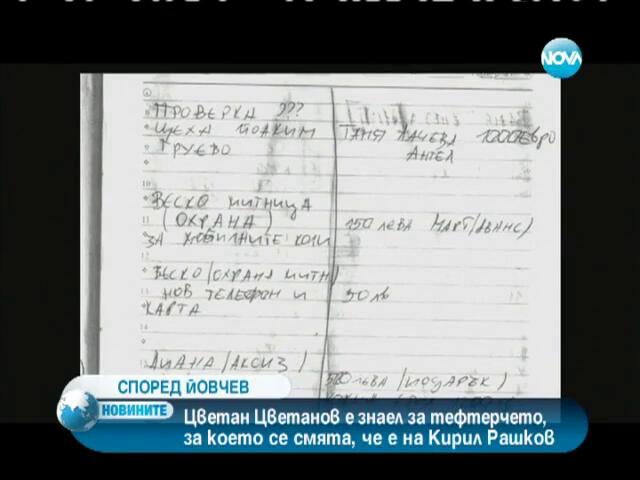 NOVA
ПРОВЕРКА ???
ЩЕХА ЙОАКИМ
ГРУЕВО
ТАНЯ 1000 ЕВРО
АНГЕЛ
ВЕСКО МИТНИЦА
(ОХРАНА) 150 ЛЕВА МАРТ/АВАНС/
ЗА КОЛИ
ВЕСКО/ОХРАНА МИТН/
НОВ ТЕЛЕФОН И 50 ЛВ
КАРТА
ДИАНА/АКСИЗ/
500 ЛЕВА/ПОДАРЪК/
СПОРЕД ЙОВЧЕВ
НОВИНИТЕ
Цветан Цветанов е знаел за тефтерчето,
за което се смята, че е на Кирил Рашков